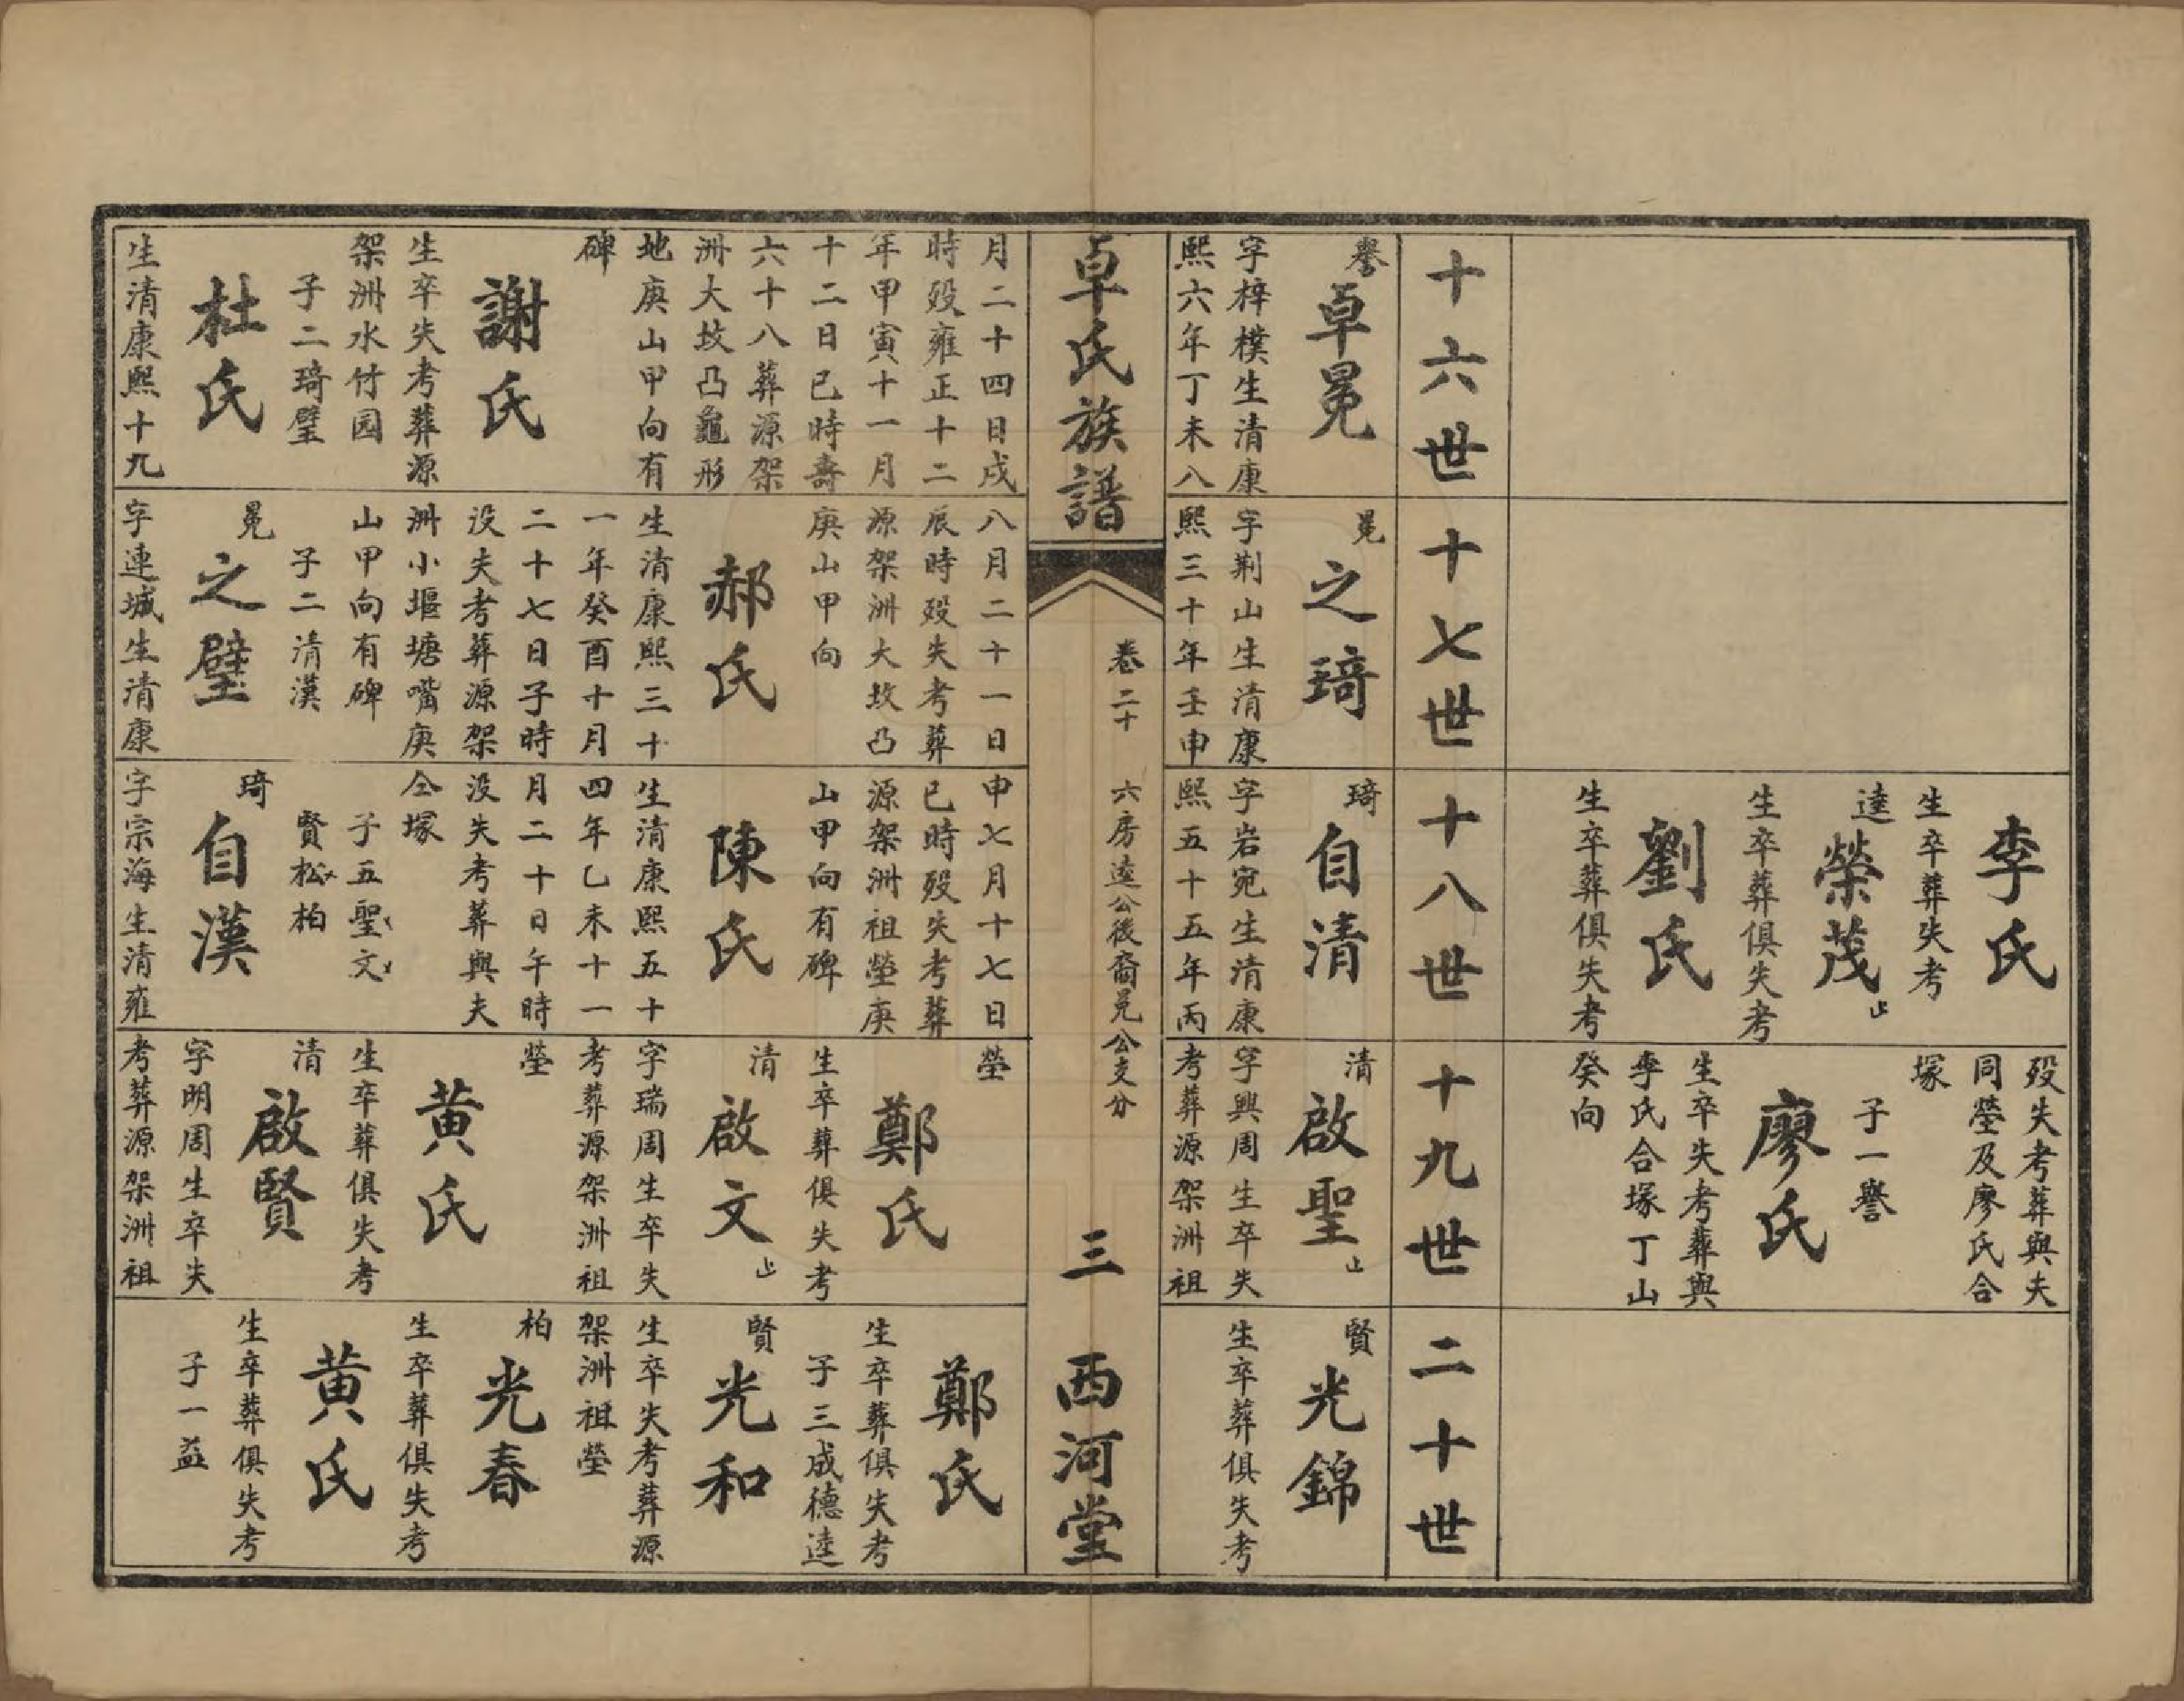 李氏
生卒葬失考
逵
榮茂止
生卒葬俱失考
劉氏
生卒葬俱失考
歿失考葬與夫
同塋及廖氏合
塚
子一譽
廖氏
生卒失考葬與
李氏合塚丁山
癸向
十六世
十七世
十八世
十九世
二十世
譽
卓冕
字梓樸生清康
熙六年丁未八
冕
之琦
字荆山生清康
熙三十年壬申
琦
自清
字岩宛生清康
熙五十五年丙
清
啟聖止
字興周生卒失
考葬源架洲祖
賢
光錦
生卒葬俱失考
卓氏族譜
卷二十
六房逵公後裔冕公支分
三
西河堂
月二十四日戌
時歿雍正十二
年甲寅十一月
十二日已時壽
六十八葬源架
洲大坟凸龜形
地庚山甲向有
碑
謝氏
生卒失考葬源
架洲水竹园
子二琦璧
杜氏
生清康熙十九
八月二十一日
辰時歿失考葬
源架洲大坟凸
庚山甲向
郝氏
生清康熙三十
一年癸酉十月
二十七日子時
没失考葬源架
洲小堰塘嘴庚
山甲向有碑
子二清漢
冕
之璧
字連城生清康
申七月十七日
已時歿失考葬
源架洲祖塋庚
山甲向有碑
陳氏
生清康熙五十
四年乙未十一
月二十日午時
没失考葬與夫
仝塚
子五聖文
賢松柏
琦
自漢
字宗海生清雍
塋
鄭氏
生卒葬俱失考
清
啟文止
字瑞周生卒失
考葬源架洲祖
塋
黄氏
生卒葬俱失考
清
啟賢
字明周生卒失
考葬源架洲祖
鄭氏
生卒葬俱失考
子三成德逵
賢
光和
生卒失考葬源
架洲祖塋
柏
光春
生卒葬俱失考
黄氏
生卒葬俱失考
子一益